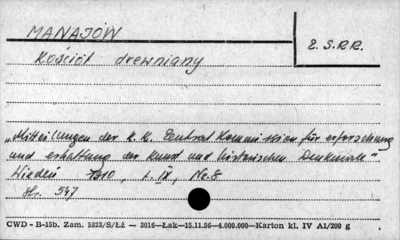 MANAJÓW
Z.S.R.R.
Kościół drewniany
„Mitteilungen der K.K. Zentral Kommission für erforschung
und erhaltung der Kunst und historischen Denkmale"
Wiedeń 1910, t. IX, Nr. 8
str. 347
CWD - B-15b. Zam. 5823/S/Łż — 3016—Łak—15.11.56—4.000.000—Karton kl. IV A1/200 g